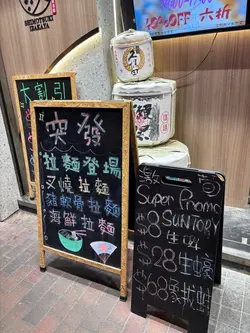 SHINJUTSUKI
IZAKAYA
40% OFF 六折
六割引
突發
拉麵登場
叉燒拉麵
豬軟骨拉麵
海鮮拉麵
激
Super Promo
$8 SUNTORY
生啤
$28生蠔
$68象拔蚌